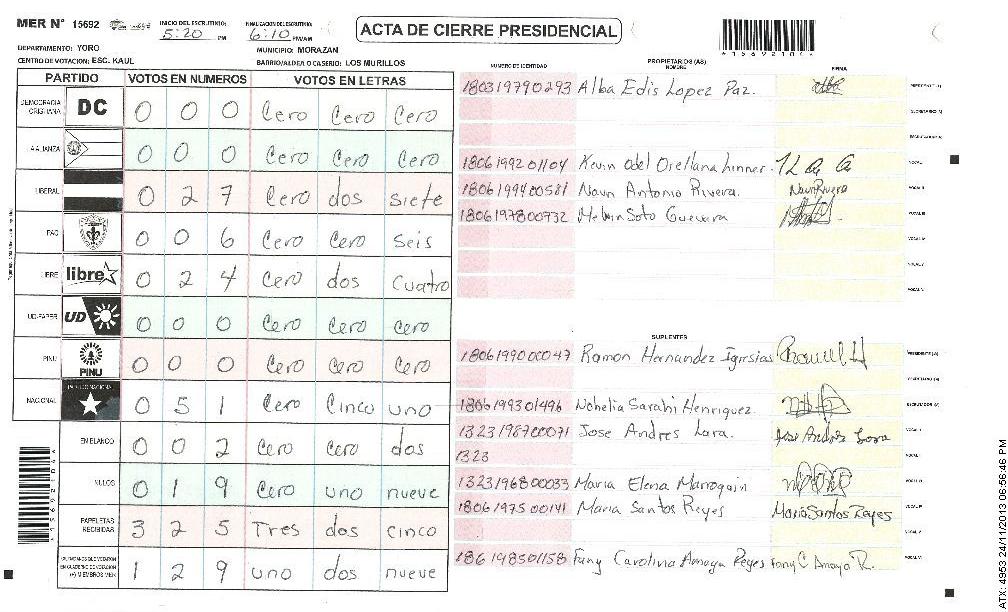 MER N° 15692
INICIO DEL ESCRUTINIO: 5:20 PM
FINALIZACION DEL ESCRUTINIO: 6:10 PM/AM
ACTA DE CIERRE PRESIDENCIAL
DEPARTAMENTO: YORO
MUNICIPIO: MORAZAN
CENTRO DE VOTACION: ESC. KAUL
BARRIO/ALDEA O CASERIO: LOS MURILLOS
PARTIDO VOTOS EN NUMEROS VOTOS EN LETRAS
DEMOCRACIA CRISTIANA DC 0 0 0 Cero Cero Cero
ALIANZA 0 0 0 Cero Cero Cero
LIBERAL 0 2 7 Cero dos siete
PAC 0 0 6 Cero Cero seis
LIBRE libre 0 2 4 Cero dos Cuatro
UD-FAPER UD 0 0 0 Cero Cero cero
PINU PINU 0 0 0 Cero Cero Cero
NACIONAL PARTIDO NACIONAL 0 5 1 Cero Cinco uno
EN BLANCO 0 0 2 Cero Cero dos
NULOS 0 1 9 Cero uno nueve
PAPELETAS RECIBIDAS 3 2 5 Tres dos cinco
CIUDADANOS QUE VOTARON EN CUADERNO DE VOTACION (+) MIEMBROS MER 1 2 9 uno dos nueve
NUMERO DE IDENTIDAD
PROPIETARIOS (AS)
NOMBRE
FIRMA
180319790293 Alba Edis Lopez Paz.
1806199201104 Kevin Odel Orellana
1806199400581 Naun Antonio Rivera. Naun Rivera
1806197800732 Melvin Soto Guevara
SUPLENTES
1806199000047 Ramon Hernandez Igresias
1806199301496 Nohelia Sarahi Henriquez.
1323198700071 Jose Andres Lara. Jose Andres Lara
1323
1323196800033 Maria Elena Marroquin
1806197500141 Maria Santos Reyes Maria Santos Reyes
186198501158 Fany Carolina Amaya Reyes Fany C Amaya R.
1569210
1569210
ATX: 4953 24/11/2013 06:56:46 PM